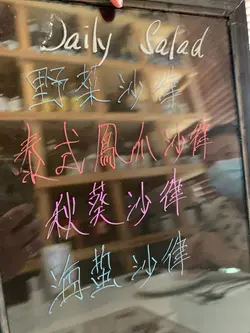 Daily Salad
野菜沙律
泰式鳳爪沙律
秋葵沙律
海蜇沙律